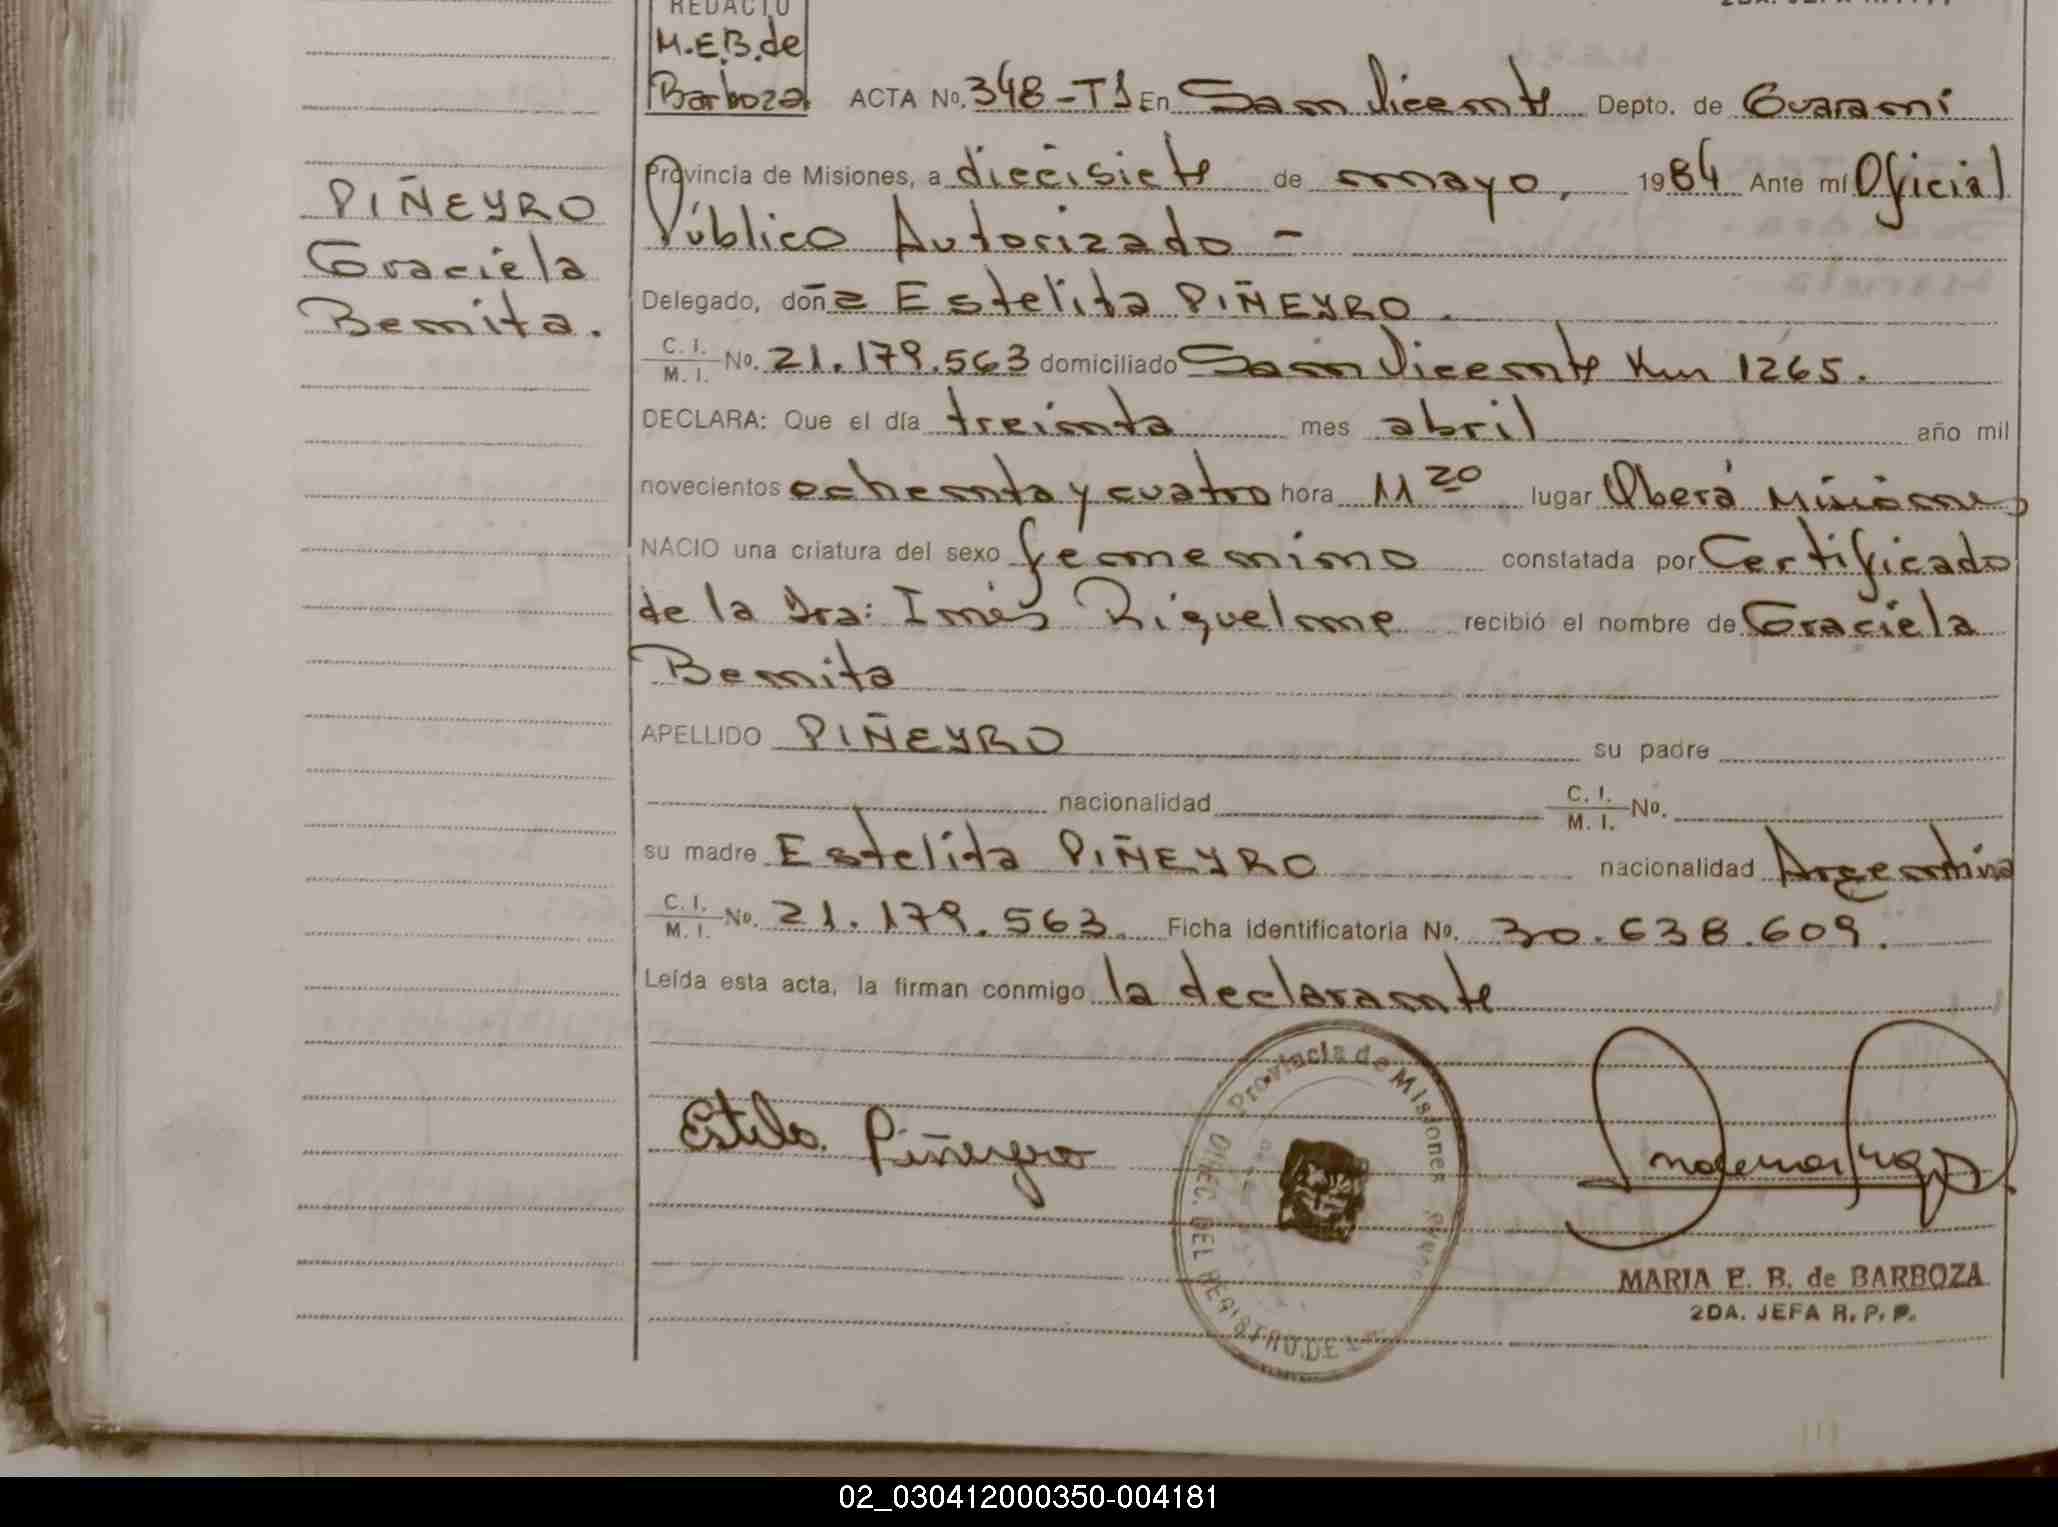 REDACTO
M.E.B. de
Barboza
ACTA No. 348-T1 En San Vicente Depto. de Guaraní
Provincia de Misiones, a diecisiete de mayo, 1984 Ante mí Oficial
Público Autorizado -
PIÑEYRO
Graciela
Benita.
Delegado, doña Estelita PIÑEYRO.
C. I. / M. I. No. 21.179.563 domiciliado San Vicente Km 1265.
DECLARA: Que el día treinta mes abril año mil
novecientos ochenta y cuatro hora 11 20 lugar Oberá Misiones
NACIO una criatura del sexo femenino constatada por Certificado
de la Dra: Inés Riquelme recibió el nombre de Graciela
Benita
APELLIDO PIÑEYRO su padre
nacionalidad C. I. / M. I. No.
su madre Estelita PIÑEYRO nacionalidad Argentina
C. I. / M. I. No. 21.179.563. Ficha identificatoria No. 30.638.609.
Leída esta acta, la firman conmigo la declarante
Provincia de Misiones
DIREC. DEL REGISTRO DE
Piñeyro
MARIA E. B. de BARBOZA
2DA. JEFA R. P. P.
02_030412000350-004181